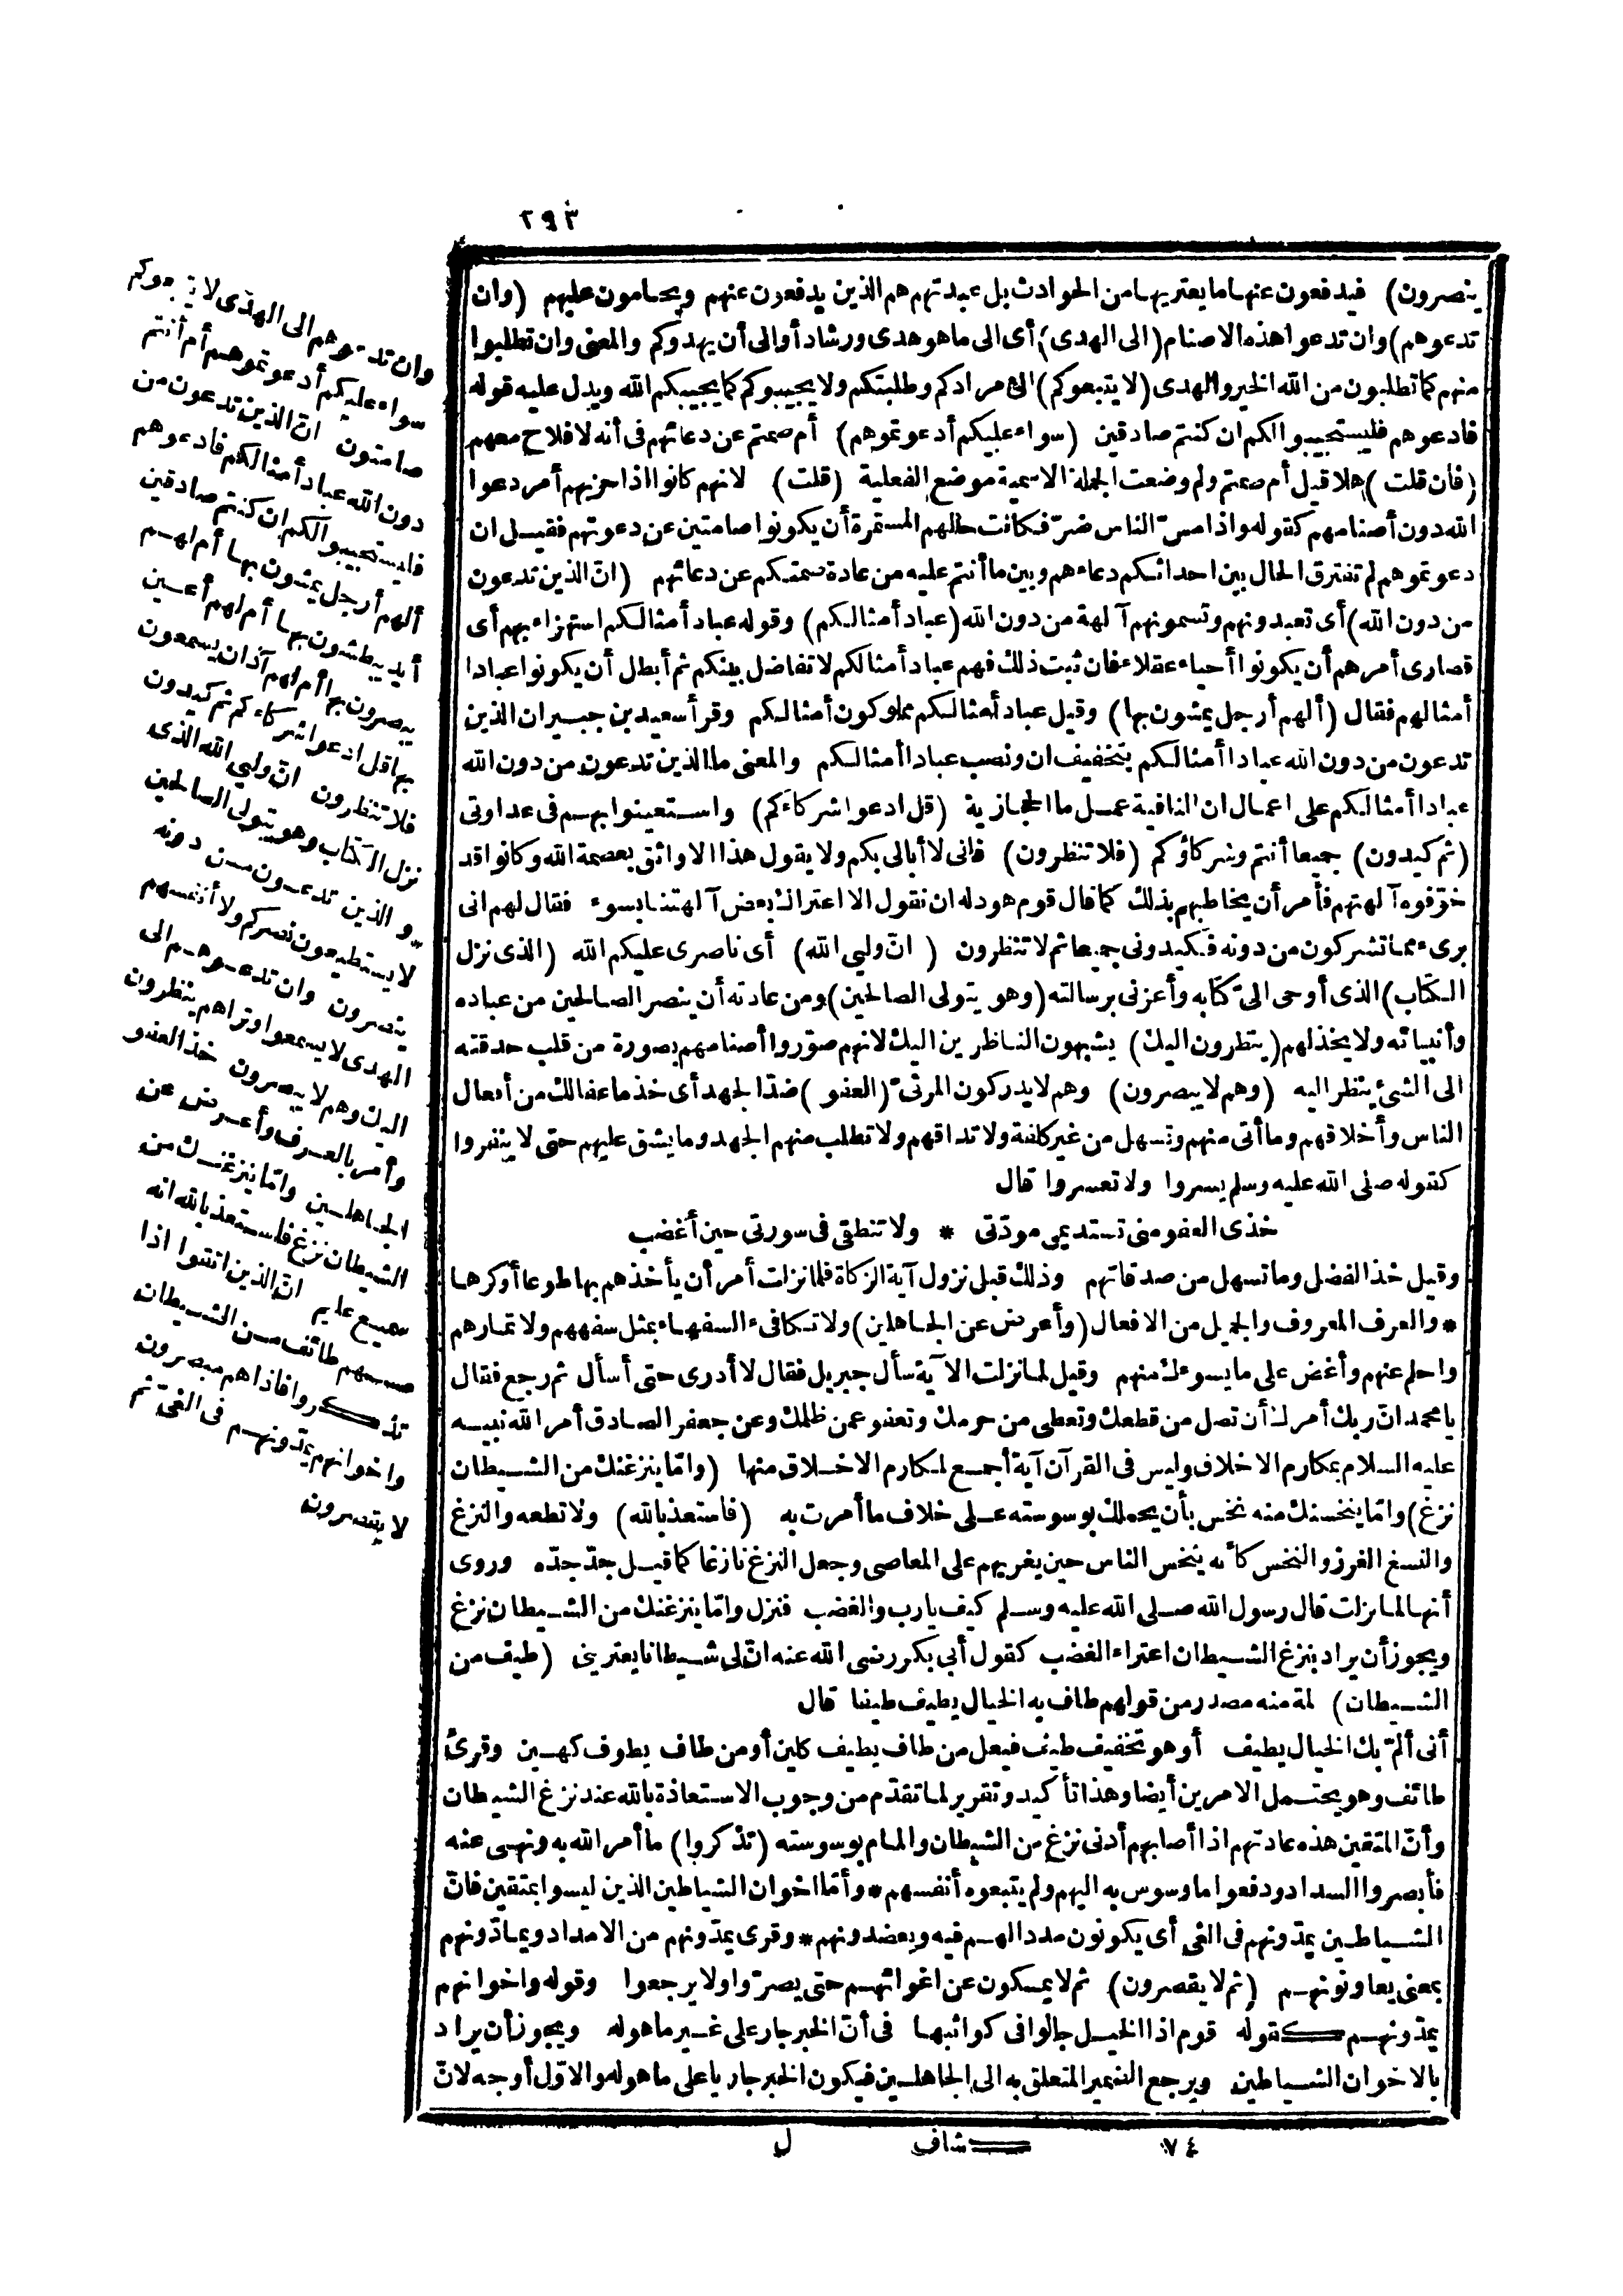 ٢٩٣
ينصرون) فيدفعون عنها ما يعتريها من الحوادث بل عبدتهم هم الذين يدفعون عنهم ويحامون عليهم (وان
تدعوهم) وان تدعوا هذه الاصنام (الى الهدى) أى الى ما هو هدى ورشاد أوالى أن يهدوكم والمعنى وان تطلبوا
منهم كما تطلبون من الله الخير والهدى (لا يتبعوكم) الى مرادكم وطلبتكم ولا يجيبوكم كما يجيبكم الله ويدل عليه قوله
فادعوهم فليستجيبوا لكم ان كنتم صادقين (سواء عليكم أدعوتموهم) أم صمتم عن دعائهم فى أنه لا فلاح معهم
(فان قلت) هلا قيل أم صمتم ولم وضعت الجملة الاسمية موضع الفعلية (قلت) لانهم كانوا اذا حزبهم أمر دعوا
الله دون أصنامهم كقوله واذا مسّ الناس ضرّ فكانت حالهم المستمرة أن يكونوا صامتين عن دعوتهم فقيل ان
دعوتموهم لم تفترق الحال بين احداثكم دعاءهم وبين ما أنتم عليه من عادة صمتكم عن دعائهم (انّ الذين تدعون
من دون الله) أى تعبدونهم وتسمونهم آلهة من دون الله (عباد أمثالكم) وقوله عباد أمثالكم استهزاء بهم أى
قصارى أمرهم أن يكونوا أحياء عقلاء فان ثبت ذلك فهم عباد أمثالكم لا تفاضل بينكم ثم أبطل أن يكونوا عبادا
أمثالهم فقال (ألهم أرجل يمشون بها) وقيل عباد أمثالكم مملوكون أمثالكم وقرأ سعيد بن جبير ان الذين
تدعون من دون الله عبادا أمثالكم بتخفيف ان ونصب عبادا أمثالكم والمعنى ما الذين تدعون من دون الله
عبادا أمثالكم على اعمال ان النافية عمل ما الحجازية (قل ادعوا شركاءكم) واستعينوا بهم فى عداوتى
(ثم كيدون) جميعا أنتم وشركاؤكم (فلا تنظرون) فانى لا أبالى بكم ولا يقول هذا الا واثق بعصمة الله وكانوا قد
خوّفوه آلهتهم فأمر أن يخاطبهم بذلك كما قال قوم هود له ان نقول الا اعتراك بعض آلهتنا بسوء فقال لهم انى
برىء مما تشركون من دونه فكيدونى جميعا ثم لا تنظرون (انّ وليى الله) أى ناصرى عليكم الله (الذى نزل
الكتاب) الذى أوحى الىّ كتابه وأعزنى برسالته (وهو يتولى الصالحين) ومن عادته أن ينصر الصالحين من عباده
وأنبيائه ولا يخذلهم (ينظرون اليك) يشبهون الناظرين اليك لانهم صوّروا أصنامهم بصورة من قلب حدقته
الى الشئ ينظر اليه (وهم لا يبصرون) وهم لا يدركون المرئى (العفو) ضدّ الجهد أى خذ ما عفا لك من أفعال
الناس وأخلاقهم وما أتى منهم وتسهل من غير كلفة ولا تداقهم ولا تطلب منهم الجهد وما يشق عليهم حتى لا ينفروا
كقوله صلى الله عليه وسلم يسروا ولا تعسروا قال
خذى العفو منى تستديمى مودّتى * ولا تنطقى فى سورتى حين أغضب
وقيل خذ الفضل وما تسهل من صدقاتهم وذلك قبل نزول آية الزكاة فلما نزلت أمر أن يأخذهم بها طوعا أو كرها
* والعرف المعروف والجميل من الافعال (وأعرض عن الجاهلين) ولا تكافىء السفهاء بمثل سفههم ولا تمارهم
واحلم عنهم وأغض على ما يسوءك منهم وقيل لما نزلت الآية سأل جبريل فقال لا أدرى حتى أسأل ثم رجع فقال
يا محمد انّ ربك أمرك أن تصل من قطعك وتعطى من حرمك وتعفو عمن ظلمك وعن جعفر الصادق أمر الله نبيه
عليه السلام بمكارم الاخلاق وليس فى القرآن آية أجمع لمكارم الاخلاق منها (وامّا ينزغنك من الشيطان
نزغ) وامّا ينخسنك منه نخس بأن يحملك بوسوسته على خلاف ما أمرت به (فاستعذ بالله) ولا تطعه والنزغ
والنسغ الغرز والنخس كأنه ينخس الناس حين يغريهم على المعاصى وجعل النزغ نازغا كما قيل جدّ جدّه وروى
أنها لما نزلت قال رسول الله صلى الله عليه وسلم كيف يا رب والغضب فنزل وامّا ينزغنك من الشيطان نزغ
ويجوز أن يراد بنزغ الشيطان اعتراء الغضب كقول أبى بكر رضى الله عنه انّ لى شيطانا يعترينى (طيف من
الشيطان) لمة منه مصدر من قولهم طاف به الخيال يطيف طيفا قال
أنى ألمّ بك الخيال يطيف أو هو تخفيف طيف فيعل من طاف يطيف كلين أو من طاف يطوف كهين وقرئ
طائف وهو يحتمل الامرين أيضا وهذا تأكيد وتقرير لما تقدّم من وجوب الاستعاذة بالله عند نزغ الشيطان
وأنّ المتقين هذه عادتهم اذا أصابهم أدنى نزغ من الشيطان والمام بوسوسته (تذكروا) ما أمر الله به ونهى عنه
فأبصروا السداد ودفعوا ما وسوس به اليهم ولم يتبعوه أنفسهم * وأمّا اخوان الشياطين الذين ليسوا بمتقين فانّ
الشياطين يمدّونهم فى الغى أى يكونون مددا لهم فيه ويعضدونهم * وقرى يمدّونهم من الامداد ويمادّونهم
بمعنى يعاونونهم (ثم لا يقصرون) ثم لا يمسكون عن اغوائهم حتى يصرّوا ولا يرجعوا وقوله واخوانهم
يمدّونهم كقوله قوم اذا الخيل جالوا فى كواثبها فى أنّ الخبر جار على غير ما هو له ويجوز أن يراد
بالاخوان الشياطين ويرجع الضمير المتعلق به الى الجاهلين فيكون الخبر جاريا على ما هو له والاوّل أوجه لانّ
وان تدعوهم الى الهدى لا يتبعوكم
سواء عليكم أدعوتموهم أم أنتم
صامتون انّ الذين تدعون من
دون الله عباد أمثالكم فادعوهم
فليستجيبوا لكم ان كنتم صادقين
ألهم أرجل يمشون بها أم لهم
أيد يبطشون بها أم لهم أعين
يبصرون بها أم لهم آذان يسمعون
بها قل ادعوا شركاءكم ثم كيدون
فلا تنظرون انّ وليى الله الذى
نزل الكتاب وهو يتولى الصالحين
و الذين تدعون من دونه
لا يستطيعون نصركم ولا أنفسهم
ينصرون وان تدعوهم الى
الهدى لا يسمعوا وتراهم ينظرون
اليك وهم لا يبصرون خذ العفو
وأمر بالعرف وأعرض عن
الجاهلين وامّا ينزغنك من
الشيطان نزغ فاستعذ بالله انه
سميع عليم انّ الذين اتقوا اذا
مسهم طائف من الشيطان
تذكروا فاذا هم مبصرون
واخوانهم يمدّونهم فى الغىّ ثم
لا يقصرون
٧٤ كشاف ل